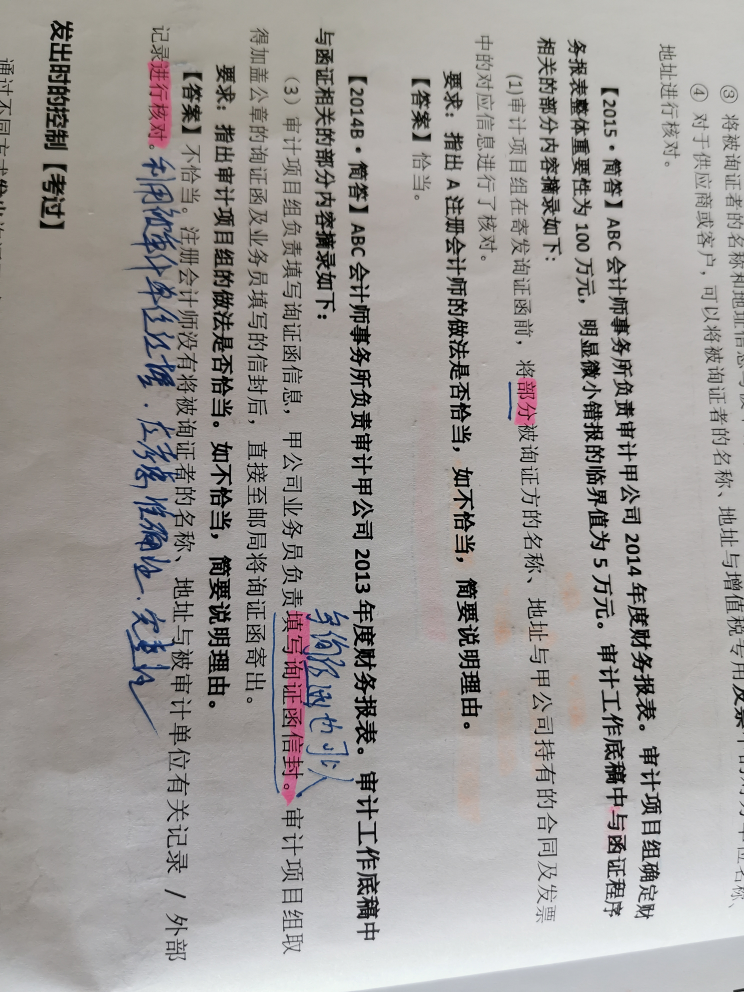 ③ 将被询证者的名称和地址信息与被
④ 对于供应商或客户，可以将被询证者的名称、地址与增值税专用发票中的对方单位名称、
地址进行核对。
【2015·简答】ABC 会计师事务所负责审计甲公司 2014 年度财务报表。审计项目组确定财
务报表整体重要性为 100 万元，明显微小错报的临界值为 5 万元。审计工作底稿中与函证程序
相关的部分内容摘录如下：
(1)审计项目组在寄发询证函前，将部分被询证方的名称、地址与甲公司持有的合同及发票
中的对应信息进行了核对。
要求：指出 A 注册会计师的做法是否恰当，如不恰当，简要说明理由。
【答案】恰当。
【2014B·简答】ABC 会计师事务所负责审计甲公司 2013 年度财务报表。审计工作底稿中
与函证相关的部分内容摘录如下：
（3）审计项目组负责填写询证函信息，甲公司业务员负责填写询证函信封。审计项目组取
得加盖公章的询证函及业务员填写的信封后，直接至邮局将询证函寄出。
要求：指出审计项目组的做法是否恰当。如不恰当，简要说明理由。
【答案】不恰当。注册会计师没有将被询证者的名称、地址与被审计单位有关记录 / 外部
记录进行核对。
利用被审计单位处理、应考虑准确性、完整性
发出时的控制【考过】
通过不同方式发出